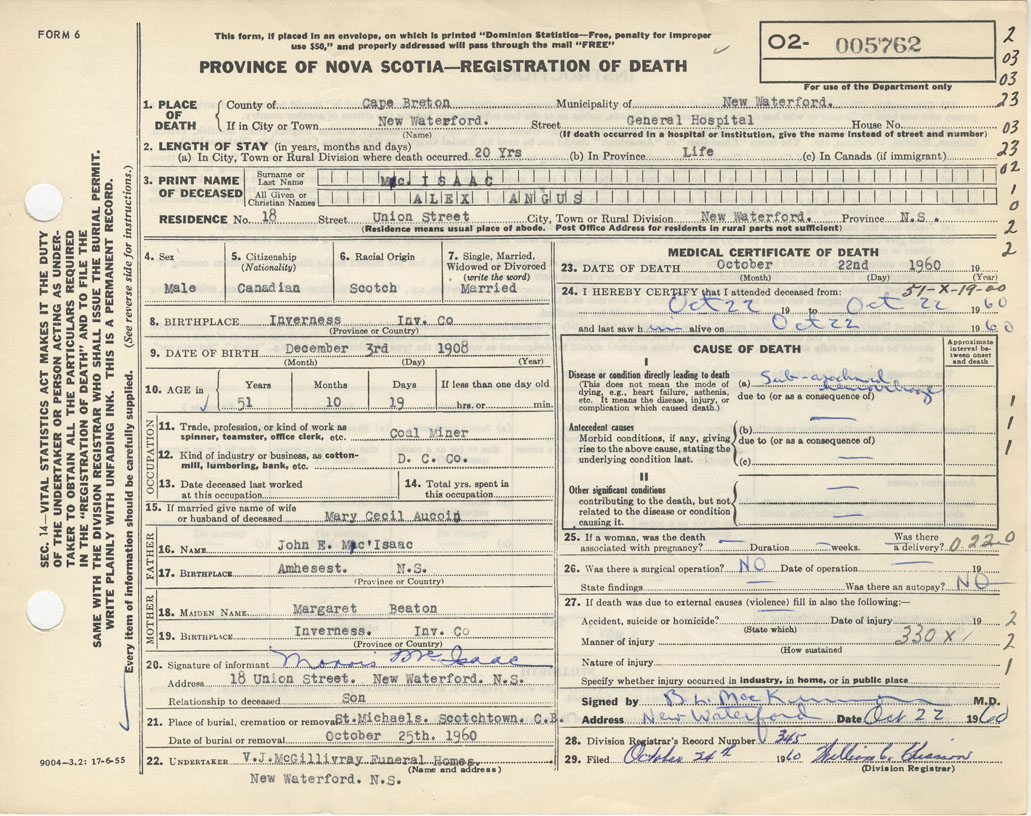 FORM 6
This form, if placed in an envelope, on which is printed "Dominion Statistics—Free, penalty for improper
use $50," and properly addressed will pass through the mail "FREE"
O2- 005762
For use of the Department only
PROVINCE OF NOVA SCOTIA—REGISTRATION OF DEATH
2
03
03
23
03
23
02
1
0
2
2
1. PLACE OF DEATH
County of Cape Breton Municipality of New Waterford.
If in City or Town New Waterford. Street General Hospital House No.
(Name) (If death occurred in a hospital or institution, give the name instead of street and number)
2. LENGTH OF STAY (in years, months and days)
(a) In City, Town or Rural Division where death occurred 20 Yrs (b) In Province Life (c) In Canada (if immigrant)
3. PRINT NAME OF DECEASED
Surname or Last Name Mc. ISAAC
All Given or Christian Names ALEX ANGUS
RESIDENCE No. 18 Street Union Street City, Town or Rural Division New Waterford. Province N.S.
(Residence means usual place of abode. Post Office Address for residents in rural parts not sufficient)
4. Sex
Male
5. Citizenship
(Nationality)
Canadian
6. Racial Origin
Scotch
7. Single, Married, Widowed or Divorced
(write the word)
Married
8. BIRTHPLACE Inverness Inv. Co
(Province or Country)
9. DATE OF BIRTH December 3rd 1908
(Month) (Day) (Year)
10. AGE in Years Months Days If less than one day old
51 10 19 hrs. or min.
OCCUPATION
11. Trade, profession, or kind of work as
spinner, teamster, office clerk, etc. Coal Miner
12. Kind of industry or business, as cotton-
mill, lumbering, bank, etc. D. C. Co.
13. Date deceased last worked
at this occupation
14. Total yrs. spent in
this occupation
15. If married give name of wife
or husband of deceased Mary Cecil Aucoin
FATHER
16. NAME John E. Mc'Isaac
17. BIRTHPLACE Amhesest. N.S.
(Province or Country)
MOTHER
18. MAIDEN NAME Margaret Beaton
19. BIRTHPLACE Inverness. Inv. Co
(Province or Country)
20. Signature of informant Morris McIsaac
Address 18 Union Street. New Waterford. N.S.
Relationship to deceased Son
21. Place of burial, cremation or removal St.Michaels. Scotchtown. C.B.
Date of burial or removal October 25th. 1960
22. UNDERTAKER V.J.McGillivray Funeral Homes.
(Name and address)
New Waterford. N.S.
MEDICAL CERTIFICATE OF DEATH
23. DATE OF DEATH October 22nd 1960 19
(Month) (Day) (Year)
51-X-19-00
24. I HEREBY CERTIFY that I attended deceased from:
Oct 22 19 to Oct 22 19 60
and last saw h im alive on Oct 22 19 60
CAUSE OF DEATH
Approximate interval between onset and death
I
Disease or condition directly leading to death
(This does not mean the mode of
dying, e.g., heart failure, asthenia,
etc. It means the disease, injury, or
complication which caused death.)
(a) Sub-arachnoid hemorrhage
due to (or as a consequence of)
Antecedent causes
Morbid conditions, if any, giving
rise to the above cause, stating the
underlying condition last.
(b) —
due to (or as a consequence of)
(c) —
II
Other significant conditions
contributing to the death, but not
related to the disease or condition
causing it.
1
1
1
25. If a woman, was the death
associated with pregnancy? — Duration — weeks. Was there
a delivery? 0220
26. Was there a surgical operation? NO Date of operation — 19
State findings — Was there an autopsy? NO
27. If death was due to external causes (violence) fill in also the following:—
Accident, suicide or homicide? Date of injury 19 2
(State which)
Manner of injury 330 X 2
(How sustained)
Nature of injury 1
Specify whether injury occurred in industry, in home, or in public place
Signed by B. L. MacKinnon M.D.
Address New Waterford Date Oct 22 1960
28. Division Registrar's Record Number 345
29. Filed October 24th 1960 William C. Chiasson
(Division Registrar)
SEC. 14—VITAL STATISTICS ACT MAKES IT THE DUTY
OF THE UNDERTAKER OR PERSON ACTING AS UNDER-
TAKER TO OBTAIN ALL THE PARTICULARS REQUIRED
IN THE "REGISTRATION OF DEATH" AND TO FILE THE
SAME WITH THE DIVISION REGISTRAR WHO SHALL ISSUE THE BURIAL PERMIT.
WRITE PLAINLY WITH UNFADING INK. THIS IS A PERMANENT RECORD.
Every item of information should be carefully supplied. (See reverse side for instructions.)
9004-3.2: 17-6-55